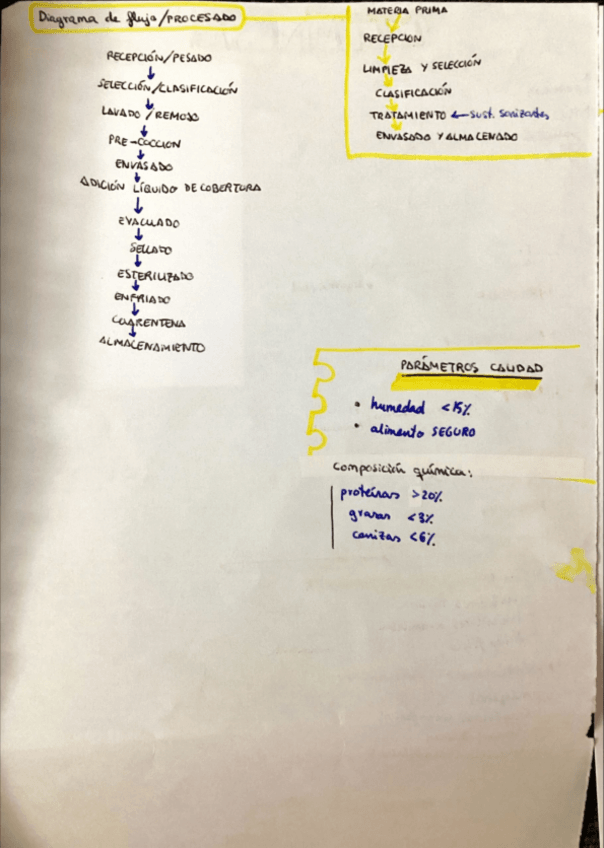 Diagrama de flujo/PROCESADO
RECEPCIÓN/PESADO
SELECCIÓN/CLASIFICACIÓN
LAVADO/REMOJO
PRE-COCCION
ENVASADO
ADICIÓN LÍQUIDO DE COBERTURA
EVACUADO
SELLADO
ESTERILIZADO
ENFRIADO
CUARENTENA
ALMACENAMIENTO
MATERIA PRIMA
RECEPCION
LIMPIEZA Y SELECCIÓN
CLASIFICACIÓN
TRATAMIENTO ← sust. sanizantes
ENVASADO Y ALMACENADO
PARÁMETROS CALIDAD
• humedad <15%
• alimento SEGURO
Composición química:
proteínas >20%
grasas <3%
cenizas <6%